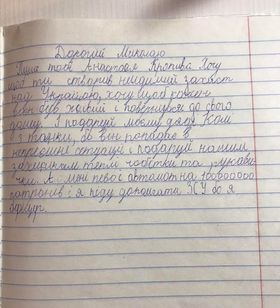 Дорогий Миколаю
Пише тобі Анастасія Кропива Хочу
щоб ти створив невидимий захист
над Україною, хочу щоб кожен
воїн був живий і повернувся до свого
дому. І подаруй моєму дяді Колі
3 гранки, бо він попадає в
неприємні ситуації і подаруй нашим
захисникам теплі чобітки та рукави-
чки. А мені пево і автомат на 100000000
патронів і я піду допомагати ЗСУ бо я
афігур.